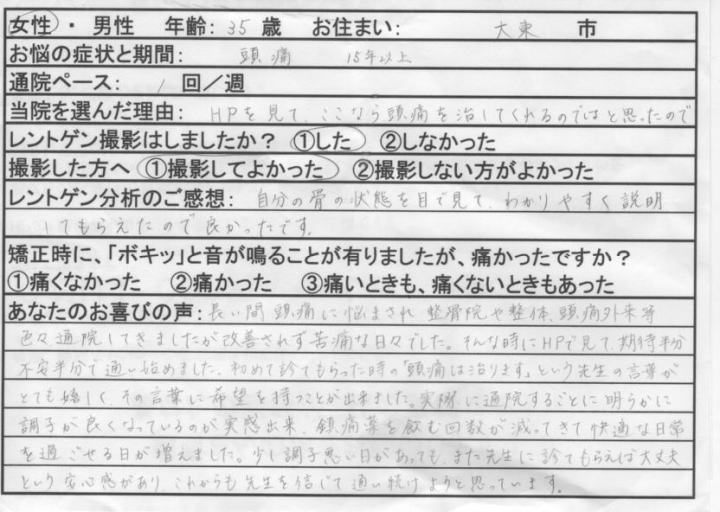 女性・男性 年齢: 35 歳 お住まい: 大東 市
お悩の症状と期間: 頭痛 15年以上
通院ペース: 1 回/週
当院を選んだ理由: HPを見て、ここなら頭痛を治してくれるのではと思ったので
レントゲン撮影はしましたか? ①した ②しなかった
撮影した方へ ①撮影してよかった ②撮影しない方がよかった
レントゲン分析のご感想: 自分の骨の状態を目で見て、わかりやすく説明
してもらえたので良かったです。
矯正時に、「ボキッ」と音が鳴ることが有りましたが、痛かったですか?
①痛くなかった ②痛かった ③痛いときも、痛くないときもあった
あなたのお喜びの声: 長い間頭痛に悩まされ、整骨院や整体、頭痛外来等
色々通院してきましたが改善されず苦痛な日々でした。そんな時にHPで見て、期待半分
不安半分で通い始めました。初めて診てもらった時の「頭痛は治ります」という先生の言葉が
とても嬉しく、その言葉に希望を持つことが出来ました。実際に通院するごとに明らかに
調子が良くなっているのが実感出来、鎮痛薬を飲む回数が減ってきて快適な日常
を過ごせる日が増えました。少し調子悪い日があっても、また先生に診てもらえば大丈夫
という安心感があり、これからも先生を信じて通い続けようと思っています。